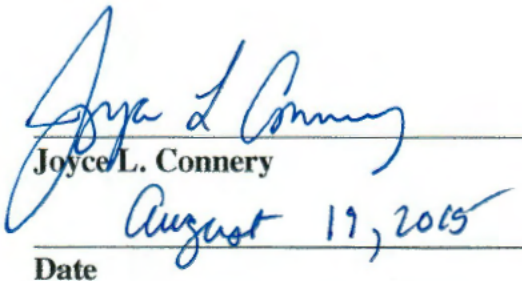 Joyce L Connery
Joyce L. Connery
August 19, 2015
Date